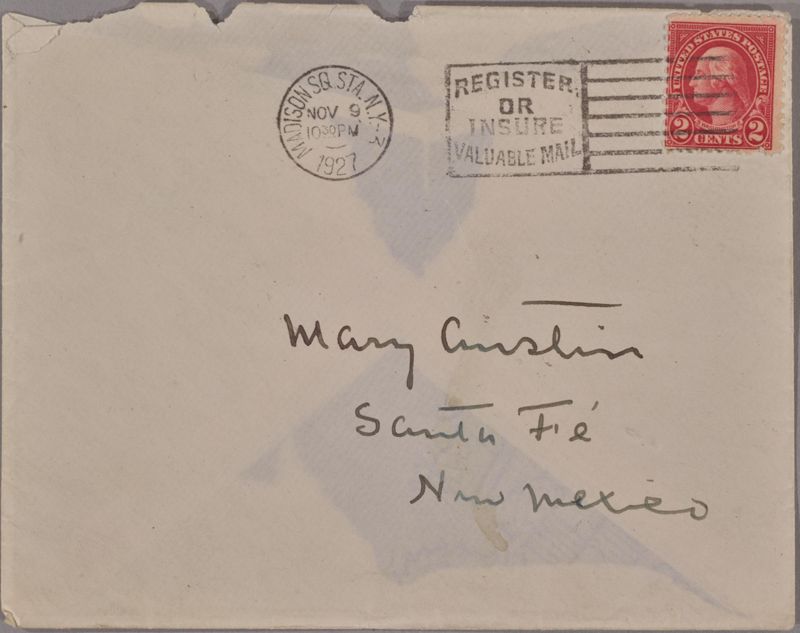 MADISON SQ. STA. N.Y.
NOV 9
10 30 PM
1927
REGISTER
OR
INSURE
VALUABLE MAIL
UNITED STATES POSTAGE
2 CENTS 2
Mary Austin
Santa Fé
New Mexico